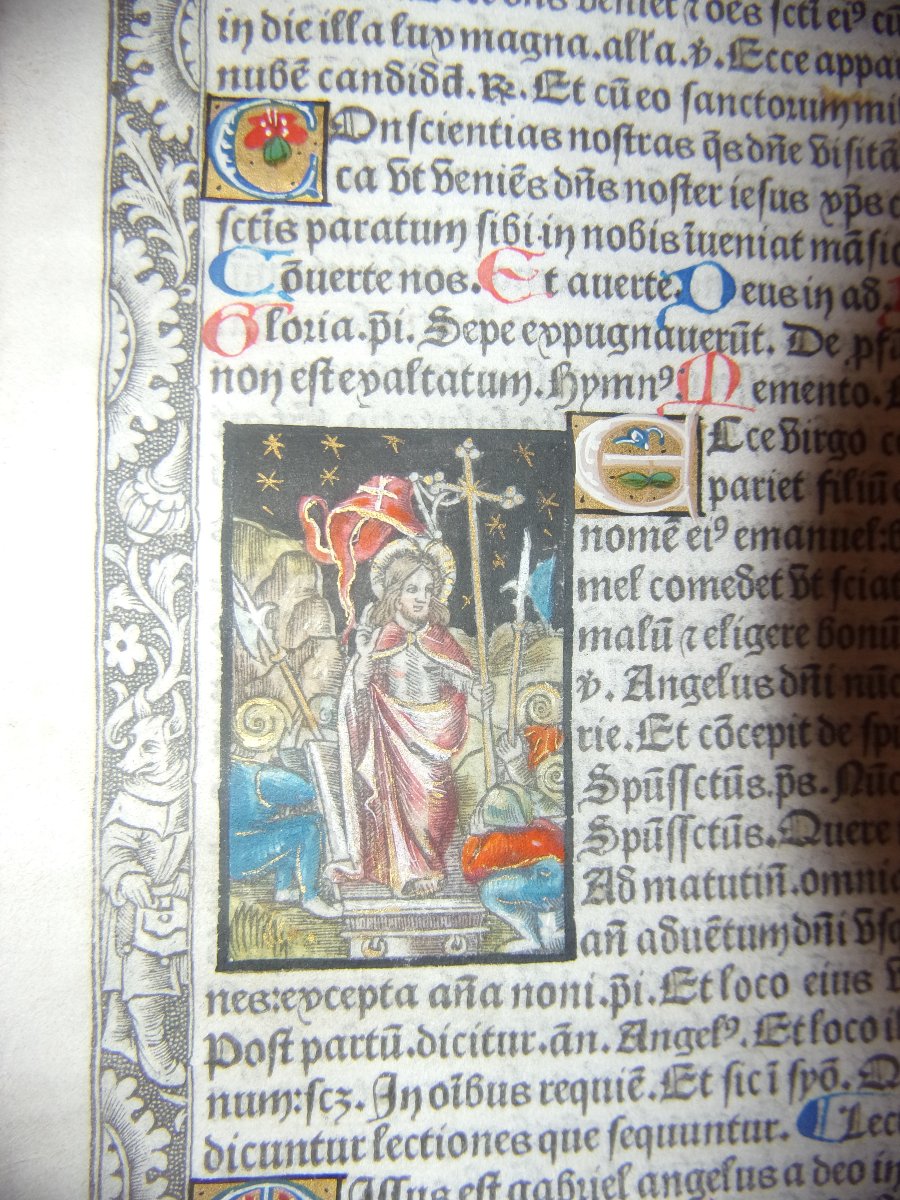 veniet ⁊ oēs sctī eiꝰ cū
in die illa lux magna. alľa. ℣. Ecce appar
nubē candidā. ℟. Et cū eo sanctorum mil
COnscientias nostras q̄s dn̄e visitā
ca vt veniēs dn̄s noster iesus xp̄s c
sctīs paratum sibi in nobis īueniat māsio
Cōuerte nos. Et auerte. Deus in ad.
Gloria. p̄i. Sepe expugnauerūt. De pſa
non est exaltatum. Hymnꝰ: Memento.
ECce virgo co
pariet filiū
nomē eiꝰ emanuel: b
mel comedet vt sciat
malū ⁊ eligere bonū
℣. Angelus dn̄i nūc
rie. Et cōcepit de spi
Spūssctūs. p̄s. Nūc
Spūssctūs. Quere
Ad matutiñ. omnia
añ aduētum dn̄i vsq
nes: excepta aña noni. p̄i. Et loco eius
Post partū. dicitur. ān. Angelꝰ. Et loco il
num: scꝫ. In oībus requiē. Et sic ī spō. Q
dicuntur lectiones que sequuntur. Lect
MIssus est gabriel angelus a deo in